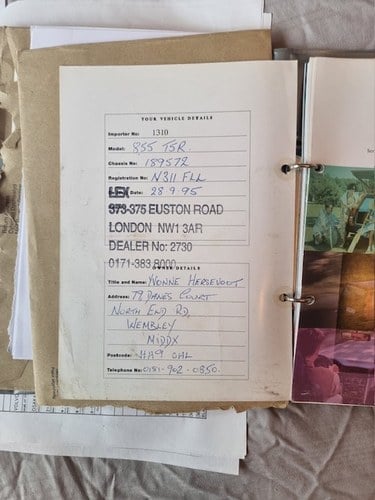 YOUR VEHICLE DETAILS
Importer No: 1310
Model: 855 T5R
Chassis No: 189572
Registration No: N311 FLL
LEX Date: 28-9-95
373-375 EUSTON ROAD
LONDON NW1 3AR
DEALER No: 2730
0171-383 8000
OWNER DETAILS
Title and Name: YVONNE HERSEVOOT
Address: 79 DANES COURT
NORTH END RD,
WEMBLEY
MIDDX
Postcode: HA9 OHL
Telephone No: 0181-902-0850.